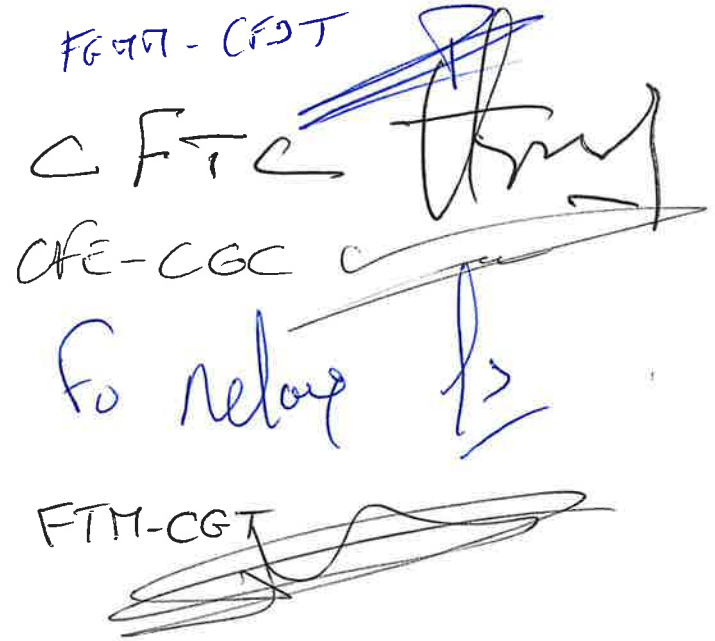 FGMM - CFDT
CFTC
CFE-CGC
Fo Metaux
FTM-CGT